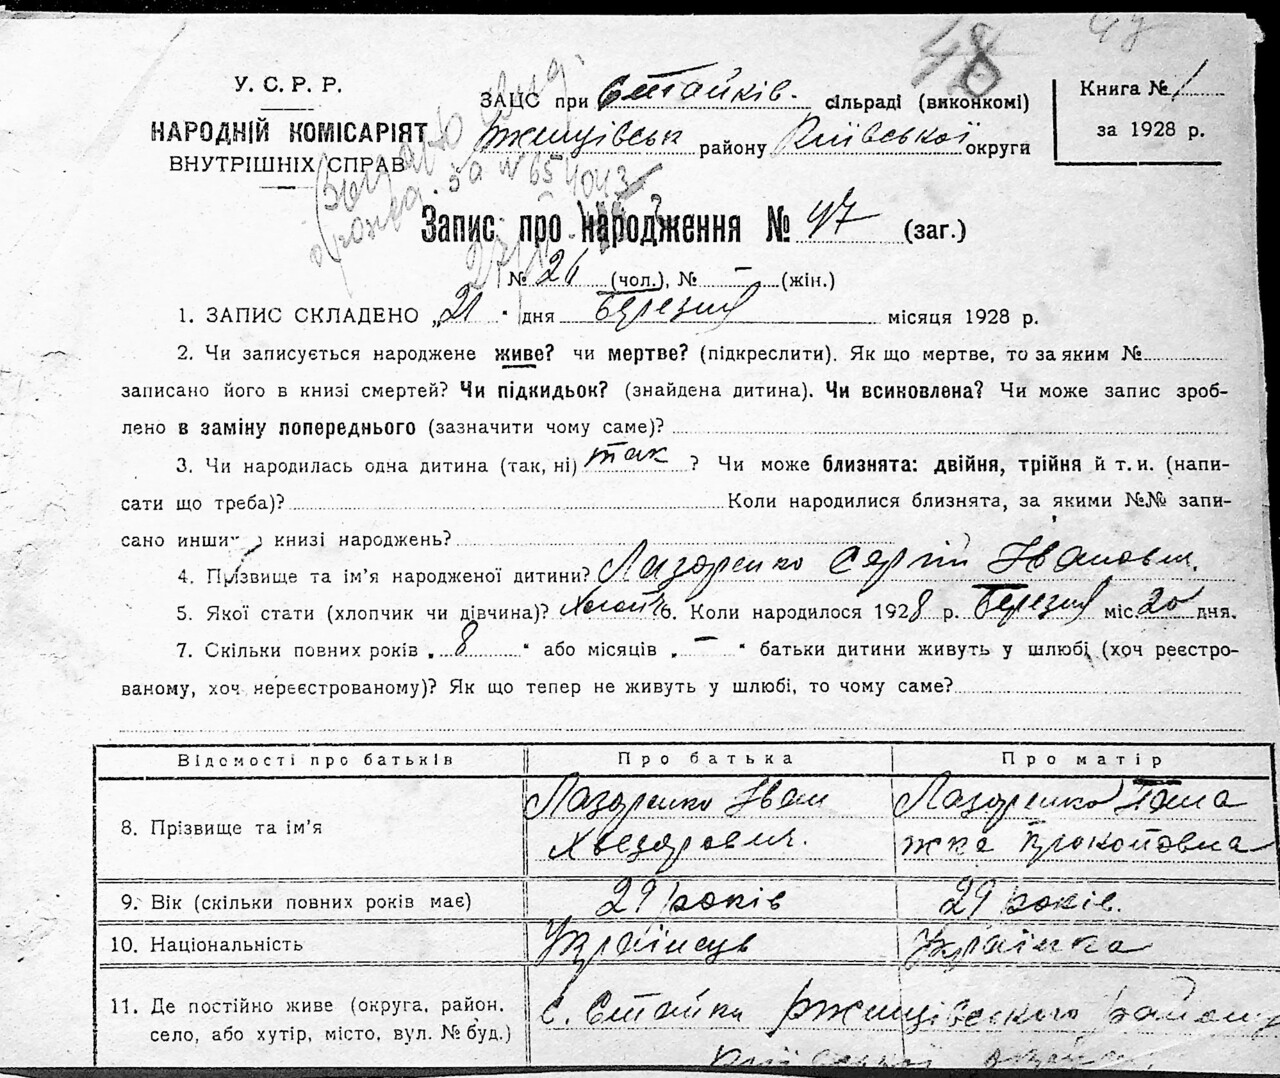 48
У.С.Р.Р.
НАРОДНІЙ КОМІСАРІЯТ
ВНУТРІШНІХ СПРАВ
ЗАЦС при Стайків. сільраді (виконкомі)
Ржищівськ району Київської округи
Книга № 1
за 1928 р.
Запис про народження № 47 (заг.)
№ 26 (чол.), № – (жін.)
1. ЗАПИС СКЛАДЕНО „21" дня березня місяця 1928 р.
2. Чи записується народжене живе? чи мертве? (підкреслити). Як що мертве, то за яким №
записано його в книзі смертей? Чи підкидьок? (знайдена дитина). Чи всиновлена? Чи може запис зроб-
лено в заміну попереднього (зазначити чому саме)?
3. Чи народилась одна дитина (так, ні) так ? Чи може близнята: двійня, трійня й т. и. (напи-
сати що треба)? Коли народилися близнята, за якими №№ запи-
сано инших в книзі народжень?
4. Прізвище та ім'я народженої дитини? Лазаренко Сергій Іванович.
5. Якої стати (хлопчик чи дівчина)? Хлопч 6. Коли народилося 1928 р. березня міс. 20 дня.
7. Скільки повних років „8" або місяців „–" батьки дитини живуть у шлюбі (хоч реєстро-
ваному, хоч нереєстрованому)? Як що тепер не живуть у шлюбі, то чому саме?
Відомості про батьків Про батька Про матір
8. Прізвище та ім'я Лазаренко Іван Хведорович. Лазаренко Пала жка Прокоповна
9. Вік (скільки повних років має) 29 років 29 років.
10. Національність Українець Українка
11. Де постійно живе (округа, район, село, або хутір, місто, вул. № буд.) с. Стайки Ржищівського району
Київської округи.